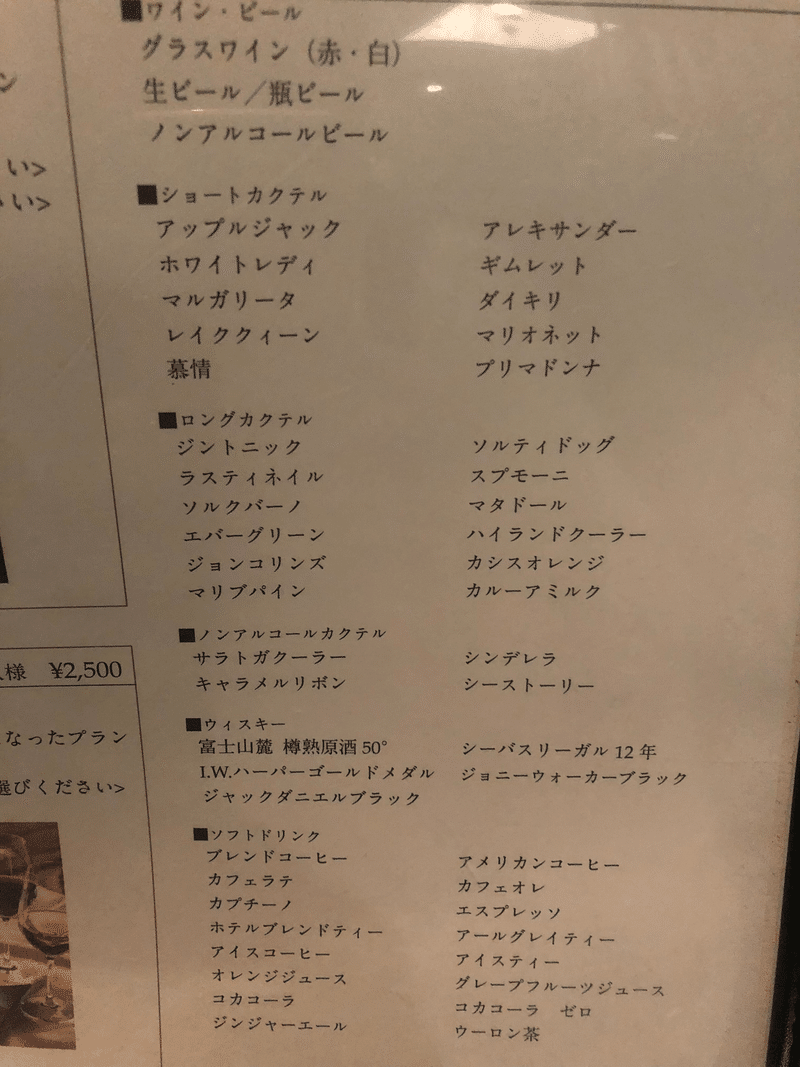 い>
い>
様 ¥2,500
なったプラン
選びください>
■ワイン・ビール
グラスワイン（赤・白）
生ビール／瓶ビール
ノンアルコールビール
■ショートカクテル
アップルジャック アレキサンダー
ホワイトレディ ギムレット
マルガリータ ダイキリ
レイククィーン マリオネット
慕情 プリマドンナ
■ロングカクテル
ジントニック ソルティドッグ
ラスティネイル スプモーニ
ソルクバーノ マタドール
エバーグリーン ハイランドクーラー
ジョンコリンズ カシスオレンジ
マリブパイン カルーアミルク
■ノンアルコールカクテル
サラトガクーラー シンデレラ
キャラメルリボン シーストーリー
■ウィスキー
富士山麓 樽熟原酒50° シーバスリーガル 12 年
I.W.ハーパーゴールドメダル ジョニーウォーカーブラック
ジャックダニエルブラック
■ソフトドリンク
ブレンドコーヒー アメリカンコーヒー
カフェラテ カフェオレ
カプチーノ エスプレッソ
ホテルブレンドティー アールグレイティー
アイスコーヒー アイスティー
オレンジジュース グレープフルーツジュース
コカコーラ コカコーラ ゼロ
ジンジャーエール ウーロン茶